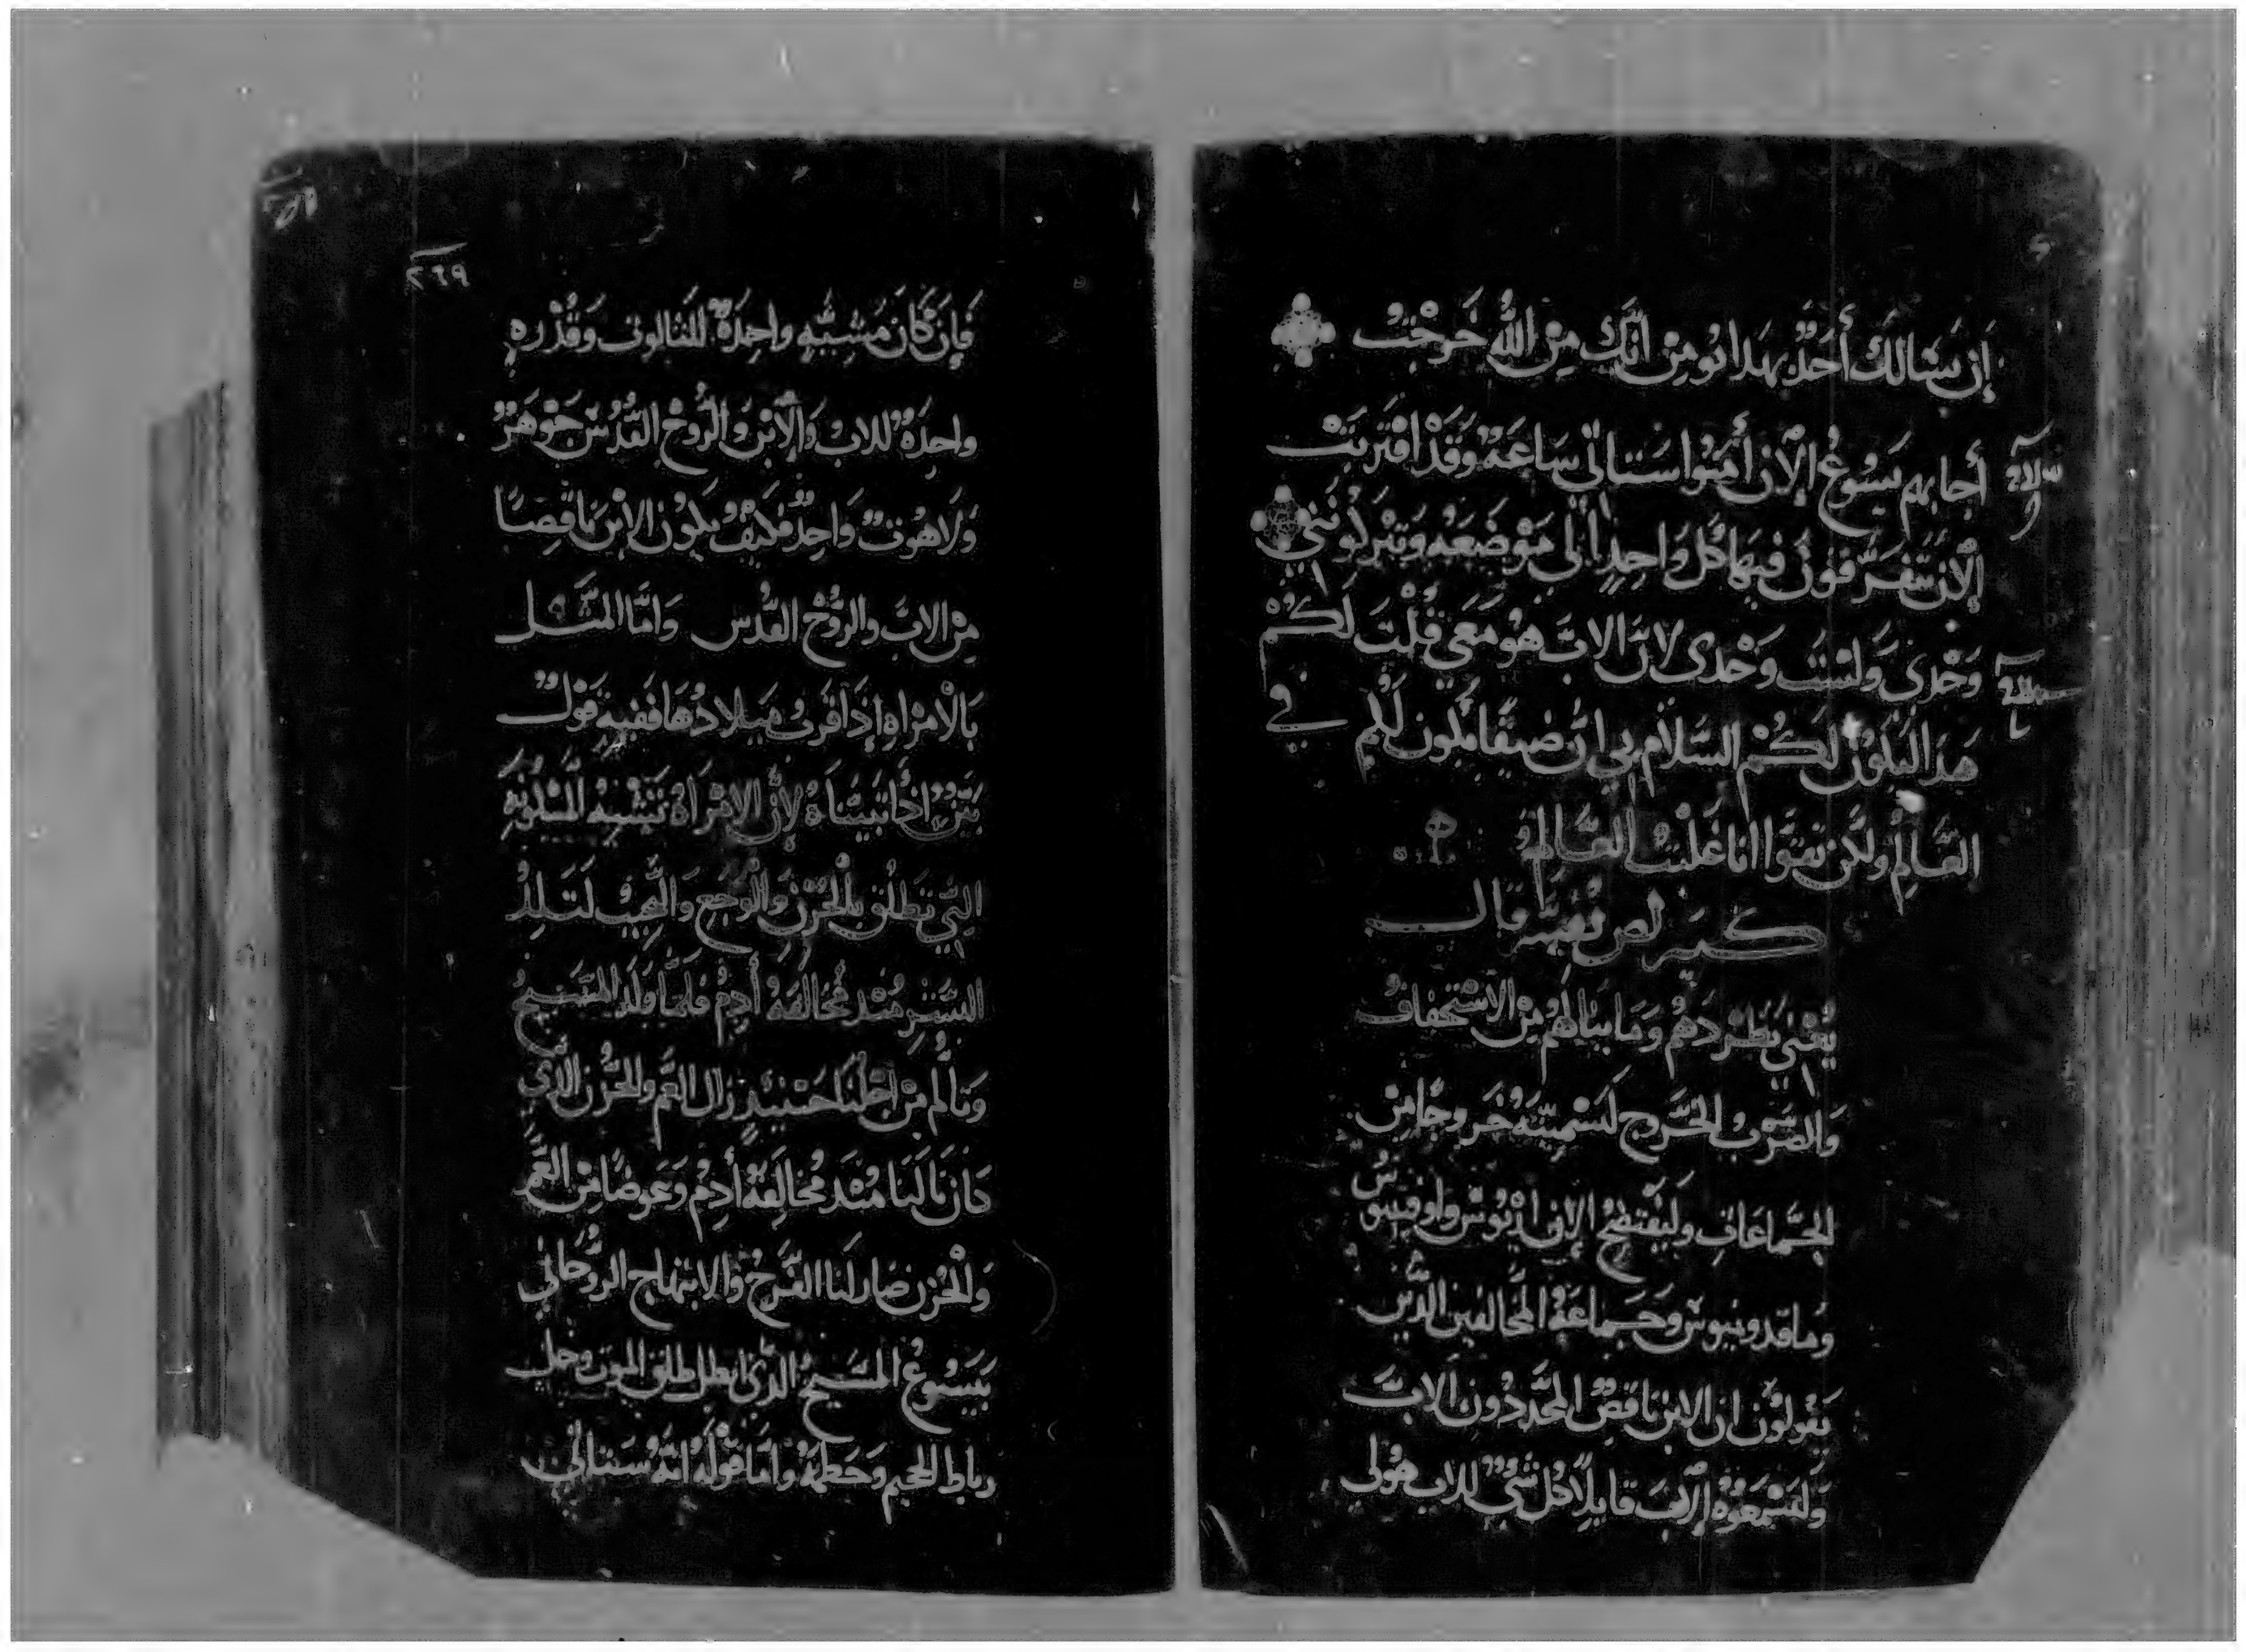 إن يسالك أحد بهدا نومن انك من الله خرجت
أجابهم يسوع الان أمنوا ستاتي ساعة وقد اقتربت
الان تتفرقون فيها كل واحد الي موضعه وتتركونني
وحدي ولست وحدى لان الاب هو معي قلت لكم
هدا ليكون لكم السلام بي ان ضيقا يكون لكم في
العالم ولكن تقوا انا غلبت العالم
قال
يعني بطردهم وما ينالهم من الاستخفاف
والضرب الخرج لتسميته خروجا من
الجماعات وليفتضح الان اريوس واونميوس
وماقدونيوس وجماعة المخالفين الدين
يقولون ان الابن ناقص المجددون الاب
وليسمعوه الان قايلا كل شي للاب هو لي
٢٦٩
فإن كان مشيه واحدة للثالوت وقدره
واحدة للاب والابن والروح القدس جوهر
ولاهوت واحد فكيف يكون الابن ناقصا
من الاب والروح القدس واما المثل
بالامراه إذا قرب ميلادها ففيه قول
بين لأن الامراة تشبه المسكونة
التي تطلق بالحزن والوجع والنحيب لتلد
البشر مند مخالفة أدم فلما ولد المسيح
وتألم من اجلنا حينيد زال الغم والحزن الدي
كان نالنا مند مخالفة أدم وعوضا من الغم
والحزن صار لنا الفرح والابتهاج الروحاني
بيسوع المسيح الدي ابطل طلق الموت وحل
رباط الجحيم وحطمه واما قوله انه ستاتي